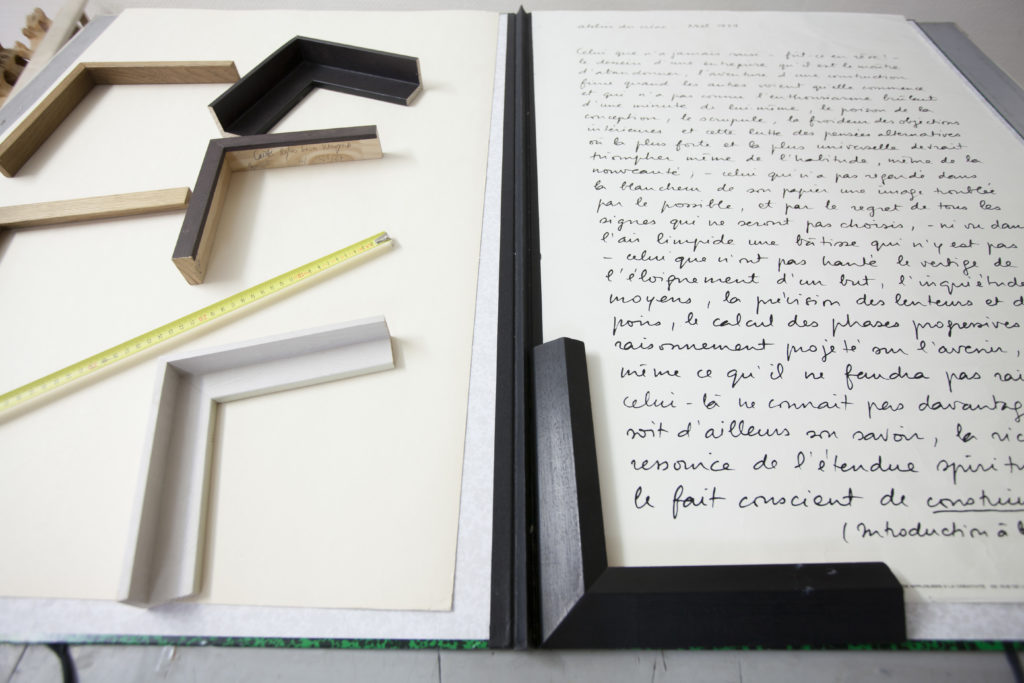 atelier du
Celui que n'a jamais saisi - fût-ce en rêve ! -
le dessein d'une entreprise qu'il est le maître
d'abandonner, l'aventure d'une construction
finie quand les autres voient qu'elle commence
et qui n'a pas connu l'enthousiasme brûlant
d'une minute de lui-même, le poison de la
conception, le scrupule, la froideur des objections
intérieures et cette lutte des pensées alternatives
où la plus forte et la plus universelle devrait
triompher même de l'habitude, même de la
nouveauté, - celui qui n'a pas regardé dans
la blancheur de son papier une image troublée
par le possible, et par le regret de tous les
signes qui ne seront pas choisis, - ni vu dan
l'air limpide une bâtisse qui n'y est pas
- celui que n'ont pas hanté le vertige de
l'éloignement d'un but, l'inquiétude
moyens, la prévision des lenteurs et d
poirs, le calcul des phases progressives
raisonnement projeté sur l'avenir,
même ce qu'il ne faudra pas rai
celui-là ne connait pas davantag
soit d'ailleurs son savoir, la ric
ressource de l'étendue spiritu
le fait conscient de construire
(Introduction à l